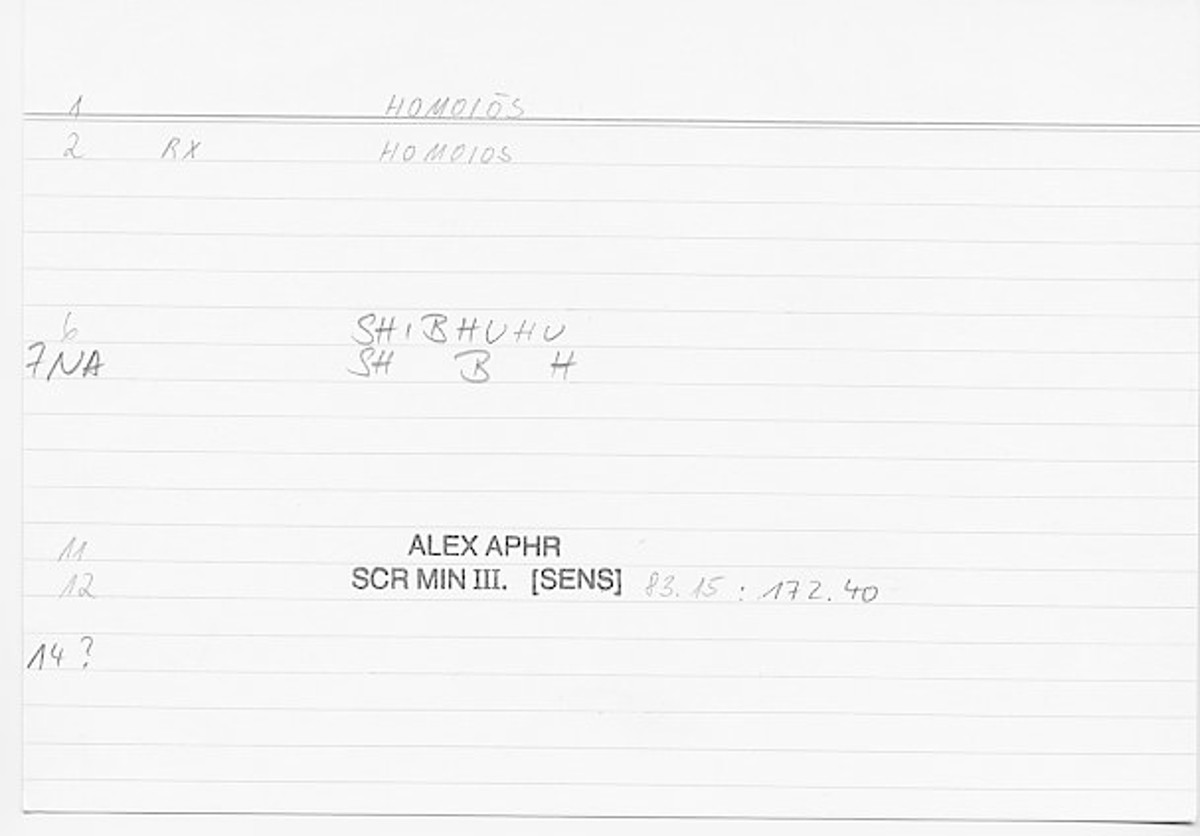 1 HOMOIŌS
2 RX HOMOIOS
6 SHIBHUHU
7NA SH B H
11 ALEX APHR
12 SCR MIN III. [SENS] 83.15 : 172.40
14 ?